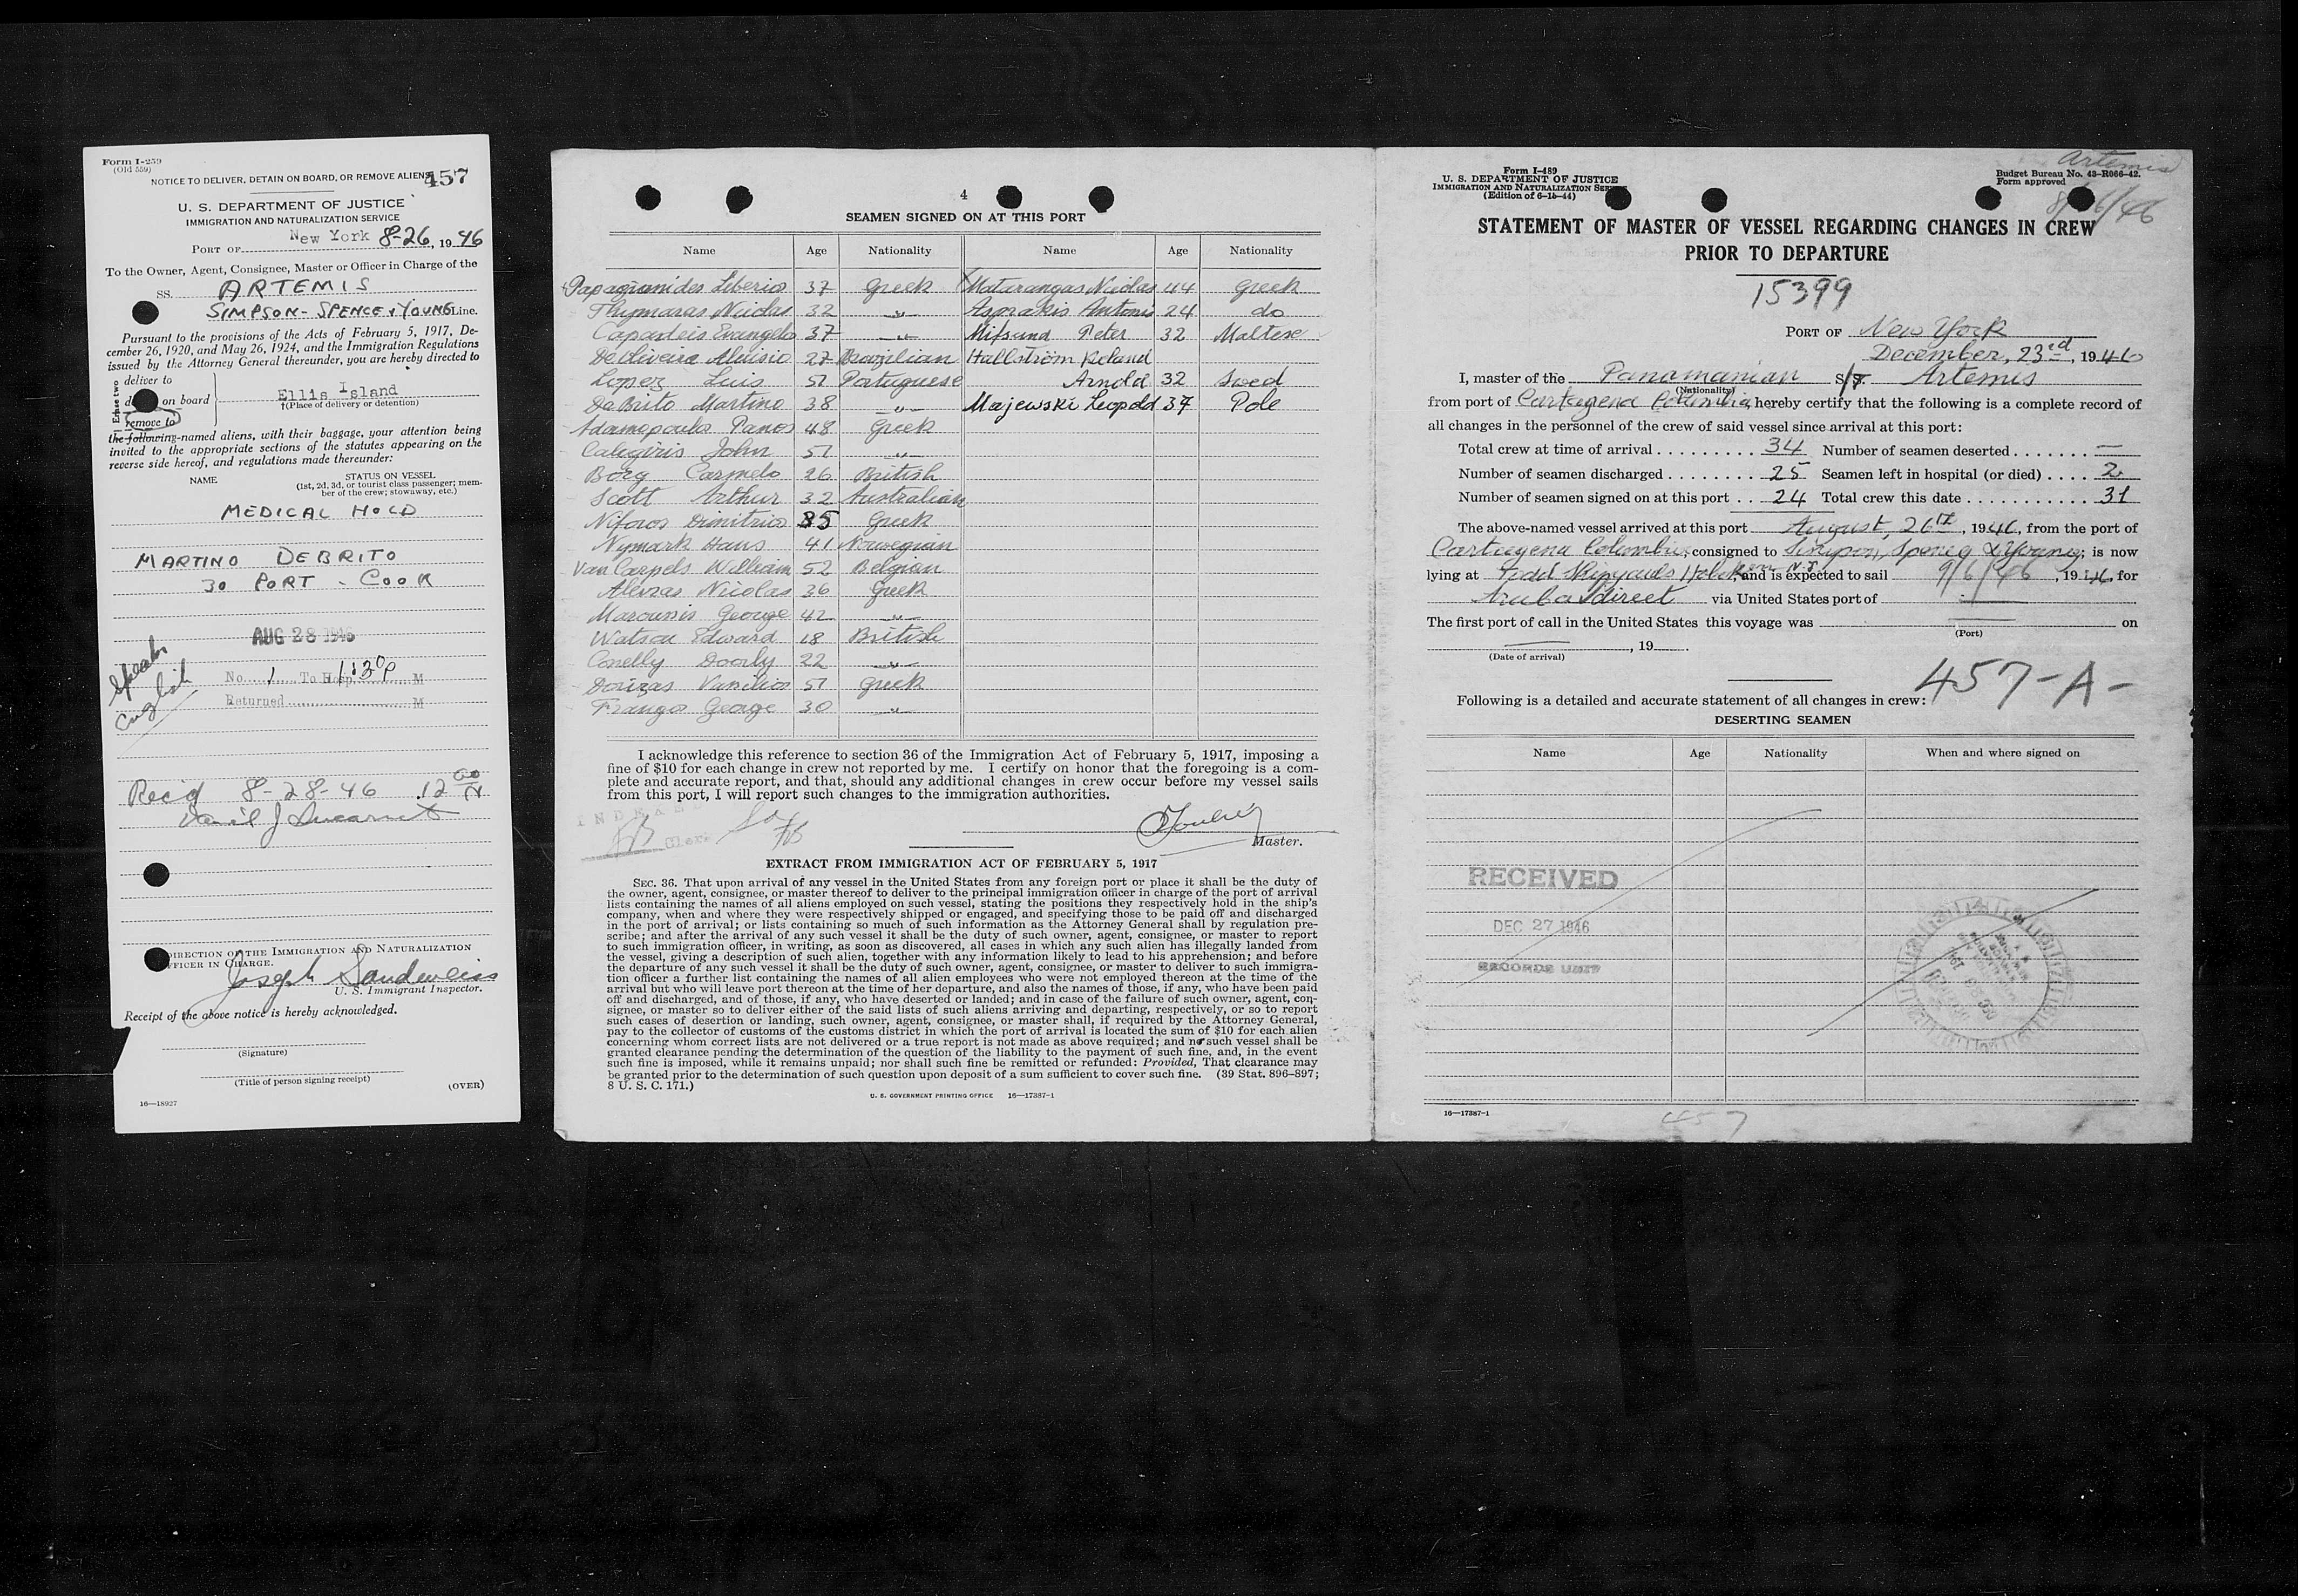 Form I-259
(Old 559)
NOTICE TO DELIVER, DETAIN ON BOARD, OR REMOVE ALIENS
457
U. S. DEPARTMENT OF JUSTICE
IMMIGRATION AND NATURALIZATION SERVICE
PORT OF New York 8-26, 1946
To the Owner, Agent, Consignee, Master or Officer in Charge of the
SS. ARTEMIS
SIMPSON-SPENCE & YOUNG Line.
Pursuant to the provisions of the Acts of February 5, 1917, De-
cember 26, 1920, and May 26, 1924, and the Immigration Regulations
issued by the Attorney General thereunder, you are hereby directed to
Erase two
deliver to
on board
remove to
Ellis Island
†(Place of delivery or detention)
the following-named aliens, with their baggage, your attention being
invited to the appropriate sections of the statutes appearing on the
reverse side hereof, and regulations made thereunder:
NAME
STATUS ON VESSEL
(1st, 2d, 3d, or tourist class passenger; mem-
ber of the crew; stowaway, etc.)
MEDICAL HOLD
MARTINO DEBRITO
30 PORT - COOK
AUG 28 1946
Speaks
English
No. 1 To Hosp. 1:30 P M
Returned M
Rec'd 8-28-46 12 00 N
DIRECTION OF THE IMMIGRATION AND NATURALIZATION
OFFICER IN CHARGE.
Joseph Sandweiss
U. S. Immigrant Inspector.
Receipt of the above notice is hereby acknowledged.
(Signature)
(Title of person signing receipt)
(OVER)
16—18927
4
SEAMEN SIGNED ON AT THIS PORT
Name Age Nationality Name Age Nationality
Papagianides Liberios 37 Greek Matarangas Nicolas 44 Greek
Thymaras Nicolas 32 -"- Asprakis Antonis 24 do
Capadeis Evangelos 37 -"- Mifsund Peter 32 Maltese
De Oliveira Aluisio 27 Brazilian Hallström Roland
Lopez Luis 51 Portuguese Arnold 32 Swed
De Brito Martino 38 -"- Majewski Leopold 37 Pole
Adamopoulos Panos 48 Greek
Caligiris John 51 -"-
Borg Carmelo 26 British
Scott Arthur 32 Australian
Niforos Dimitrios 35 Greek
Nymark Hans 41 Norwegian
Van Carpels William 52 Belgian
Alevras Nicolas 36 Greek
Marounis George 42 -"-
Watson Edward 18 British
Conelly Doorly 22 -"-
Douzas Vasilios 51 Greek
Frangos George 30 -"-
I acknowledge this reference to section 36 of the Immigration Act of February 5, 1917, imposing a
fine of $10 for each change in crew not reported by me. I certify on honor that the foregoing is a com-
plete and accurate report, and that, should any additional changes in crew occur before my vessel sails
from this port, I will report such changes to the immigration authorities.
Clerk
Master.
EXTRACT FROM IMMIGRATION ACT OF FEBRUARY 5, 1917
SEC. 36. That upon arrival of any vessel in the United States from any foreign port or place it shall be the duty of
the owner, agent, consignee, or master thereof to deliver to the principal immigration officer in charge of the port of arrival
lists containing the names of all aliens employed on such vessel, stating the positions they respectively hold in the ship's
company, when and where they were respectively shipped or engaged, and specifying those to be paid off and discharged
in the port of arrival; or lists containing so much of such information as the Attorney General shall by regulation pre-
scribe; and after the arrival of any such vessel it shall be the duty of such owner, agent, consignee, or master to report
to such immigration officer, in writing, as soon as discovered, all cases in which any such alien has illegally landed from
the vessel, giving a description of such alien, together with any information likely to lead to his apprehension; and before
the departure of any such vessel it shall be the duty of such owner, agent, consignee, or master to deliver to such immigra-
tion officer a further list containing the names of all alien employees who were not employed thereon at the time of the
arrival but who will leave port thereon at the time of her departure, and also the names of those, if any, who have been paid
off and discharged, and of those, if any, who have deserted or landed; and in case of the failure of such owner, agent, con-
signee, or master so to deliver either of the said lists of such aliens arriving and departing, respectively, or so to report
such cases of desertion or landing, such owner, agent, consignee, or master shall, if required by the Attorney General,
pay to the collector of customs of the customs district in which the port of arrival is located the sum of $10 for each alien
concerning whom correct lists are not delivered or a true report is not made as above required; and no such vessel shall be
granted clearance pending the determination of the question of the liability to the payment of such fine, and, in the event
such fine is imposed, while it remains unpaid; nor shall such fine be remitted or refunded: Provided, That clearance may
be granted prior to the determination of such question upon deposit of a sum sufficient to cover such fine. (39 Stat. 896-897;
8 U. S. C. 171.)
U. S. GOVERNMENT PRINTING OFFICE 16—17387-1
Form I-489
U. S. DEPARTMENT OF JUSTICE
IMMIGRATION AND NATURALIZATION SERVICE
(Edition of 6-15-44)
Artemis
Budget Bureau No. 43-R066-42.
Form approved
8/26/46
STATEMENT OF MASTER OF VESSEL REGARDING CHANGES IN CREW
PRIOR TO DEPARTURE
15399
PORT OF New York
December, 23rd, 1946
I, master of the Panamanian S/T. Artemis
(Nationality)
from port of Cartagena Colombia, hereby certify that the following is a complete record of
all changes in the personnel of the crew of said vessel since arrival at this port:
Total crew at time of arrival 34 Number of seamen deserted —
Number of seamen discharged 25 Seamen left in hospital (or died) 2
Number of seamen signed on at this port 24 Total crew this date 31
The above-named vessel arrived at this port August, 26th, 1946, from the port of
Cartagena Colombia, consigned to Simpson, Spence & Young; is now
lying at Todd Shipyards Hoboken N.J., and is expected to sail 9/6/46, 1946, for
Aruba direct via United States port of —
The first port of call in the United States this voyage was on
(Port)
, 19
(Date of arrival)
457-A-
Following is a detailed and accurate statement of all changes in crew:
DESERTING SEAMEN
Name Age Nationality When and where signed on
RECEIVED
DEC 27 1946
RECORDS UNIT
16—17387-1
457